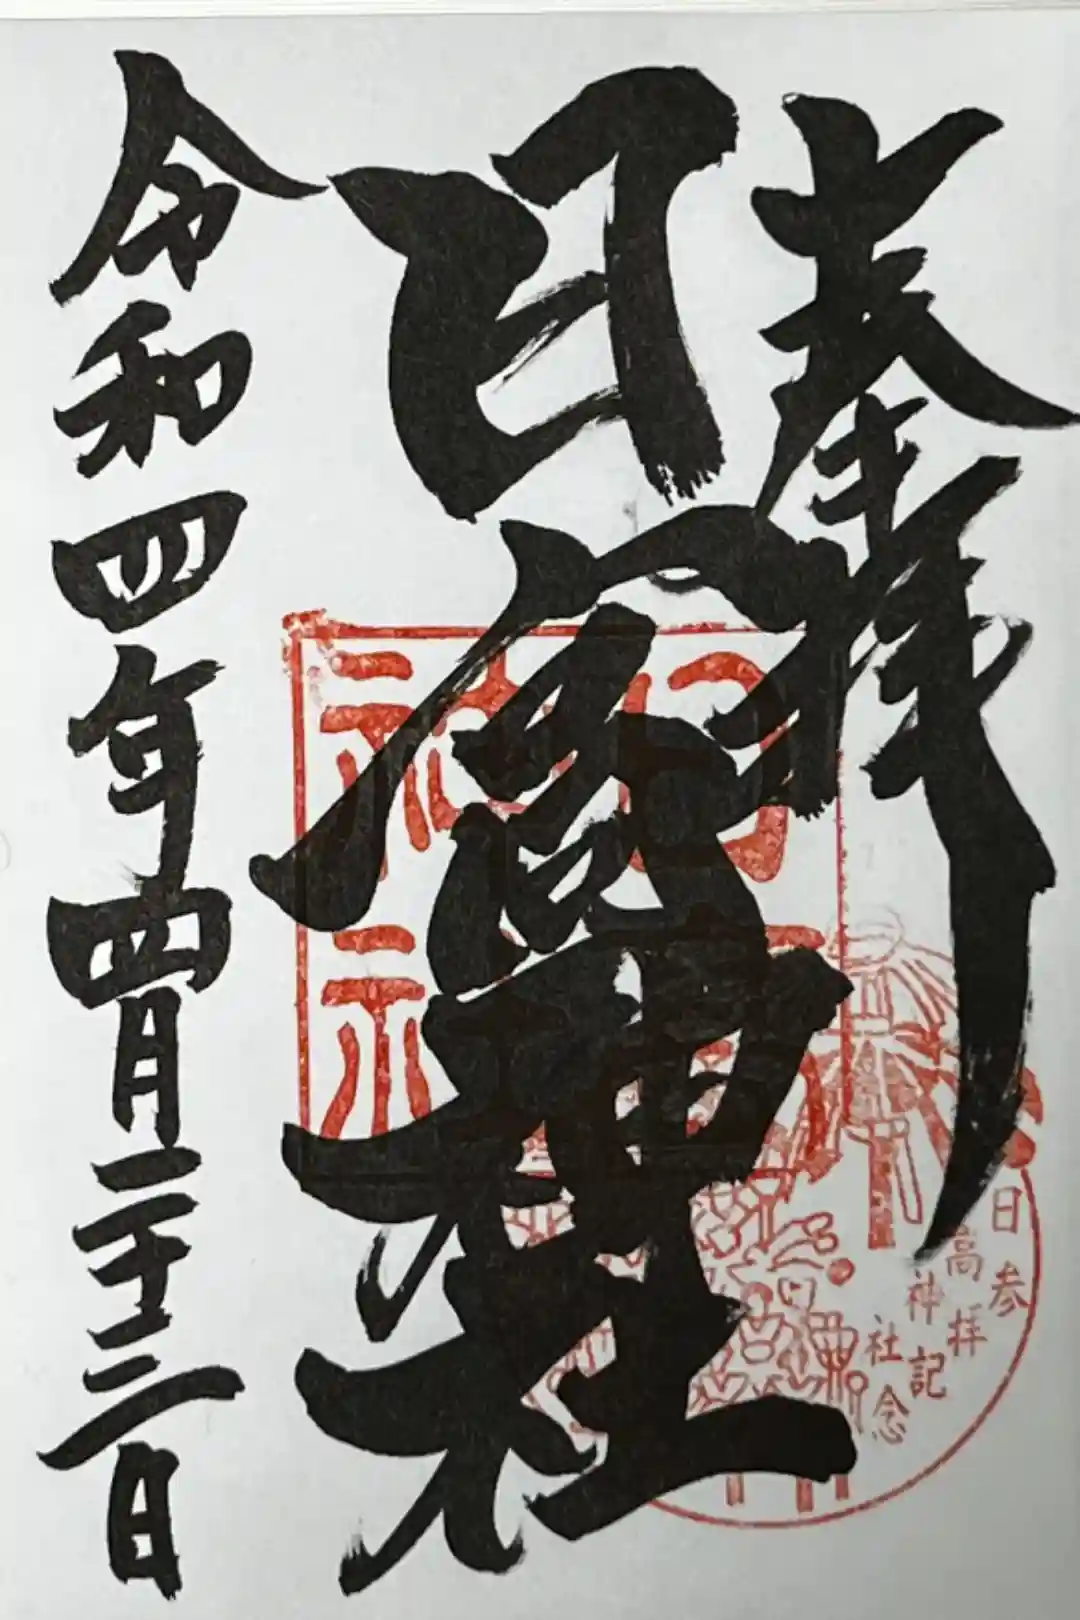 奉拝
日高神社
令和四年四月二十三日
日高神社
参拝記念